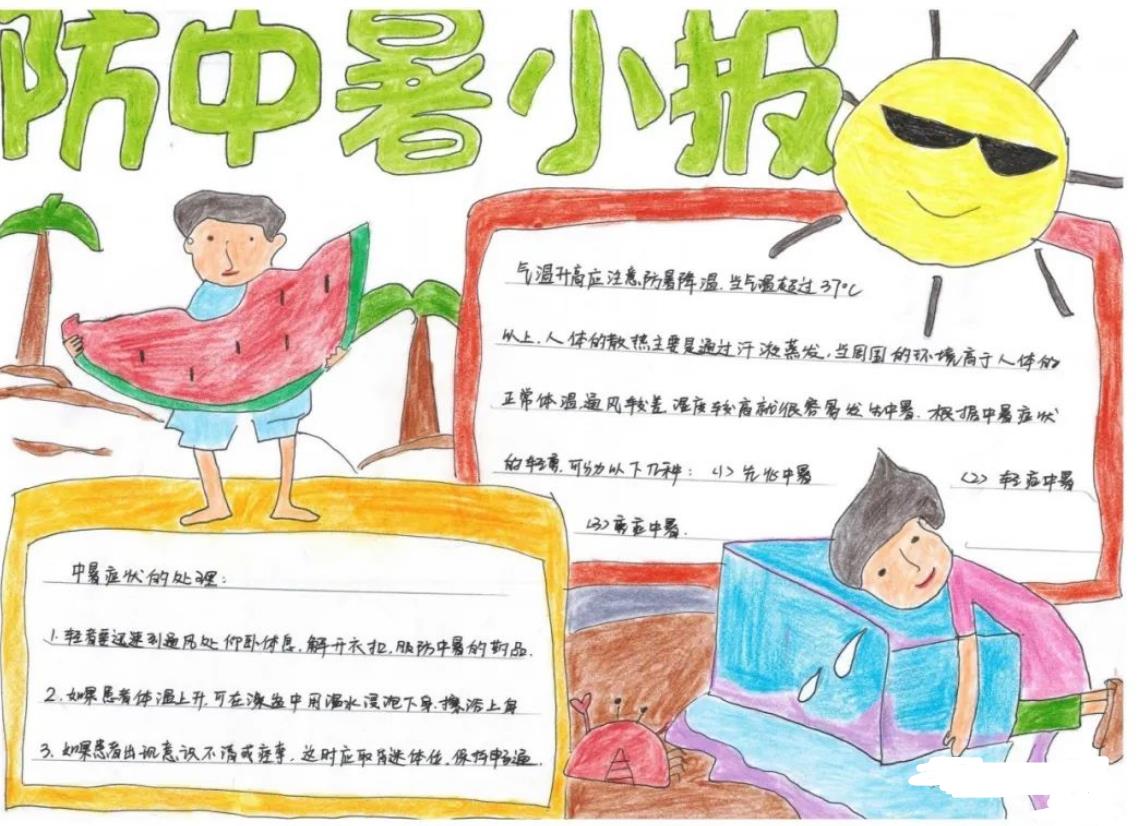 防中暑小报
气温升高应注意防暑降温.当气温超过37℃
以上.人体的散热主要是通过汗液蒸发.当周围的环境高于人体的
正常体温通风较差.湿度较高就很容易发生中暑.根据中暑症状
的轻重,可分为以下几种:(1)先兆中暑 (2)轻症中暑
(3)重症中暑.
中暑症状的处理:
1.轻者要迅速到通风处仰卧休息,解开衣扣,服防中暑的药品.
2.如果患者体温上升,可在澡盆中用温水浸泡下身.擦浴上身
3.如果患者出现意识不清或痉挛,这时应取昏迷体位,保持畅通.